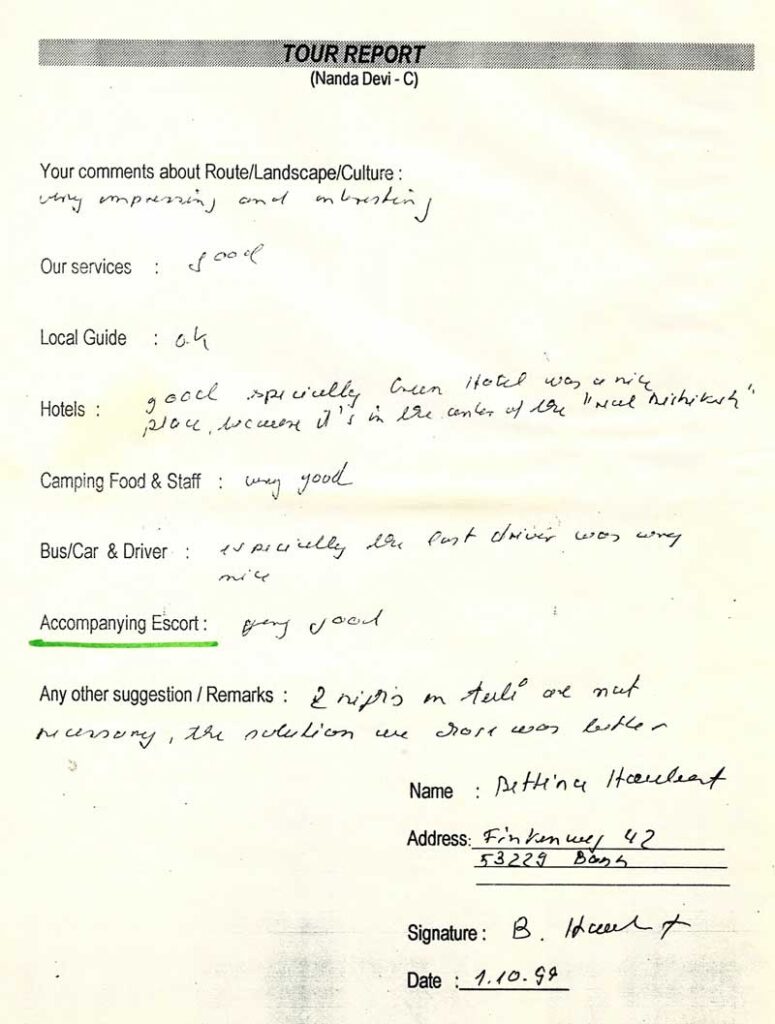 TOUR REPORT
(Nanda Devi - C)
Your comments about Route/Landscape/Culture :
very impressing and interesting
Our services : good
Local Guide : o.k
Hotels : good especially Green Hotel was a nice
place, because it's in the center of the "real Rishikesh"
Camping Food & Staff : very good
Bus/Car & Driver : especially the last driver was very
nice
Accompanying Escort : very good
Any other suggestion / Remarks : 2 nights in Auli are not
necessary, the solution we chose was better
Name : Bettina
Address: Finkenweg 42
53229 Bonn
Signature : B.
Date : 1.10.99